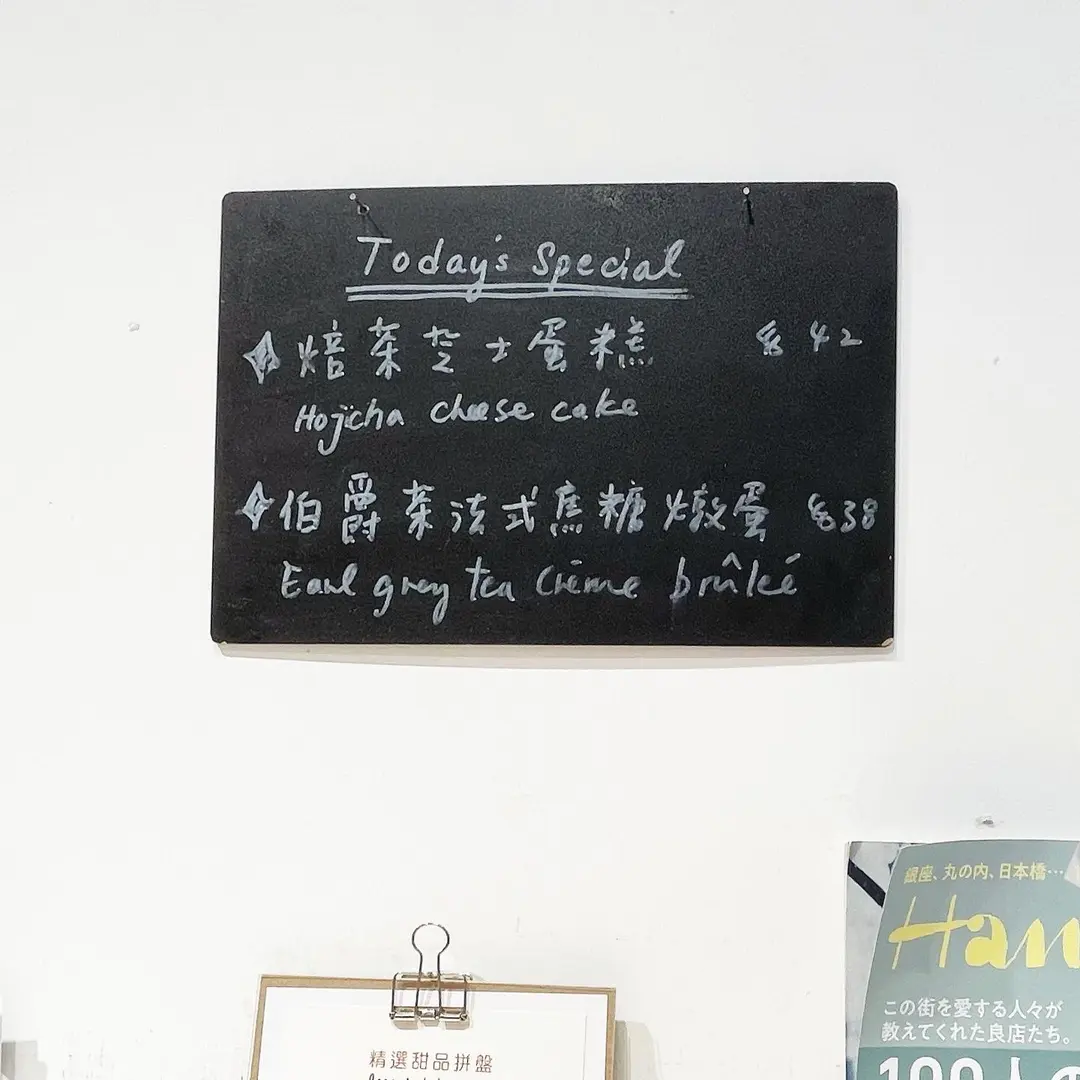 Today's Special
焙茶芝士蛋糕 $42
Hojicha cheese cake
伯爵茶法式焦糖燉蛋 $38
Earl grey tea Crème brûlée
銀座、丸の内、日本橋…
Han
この街を愛する人々が
教えてくれた良店たち。
100人の
精選甜品拼盤